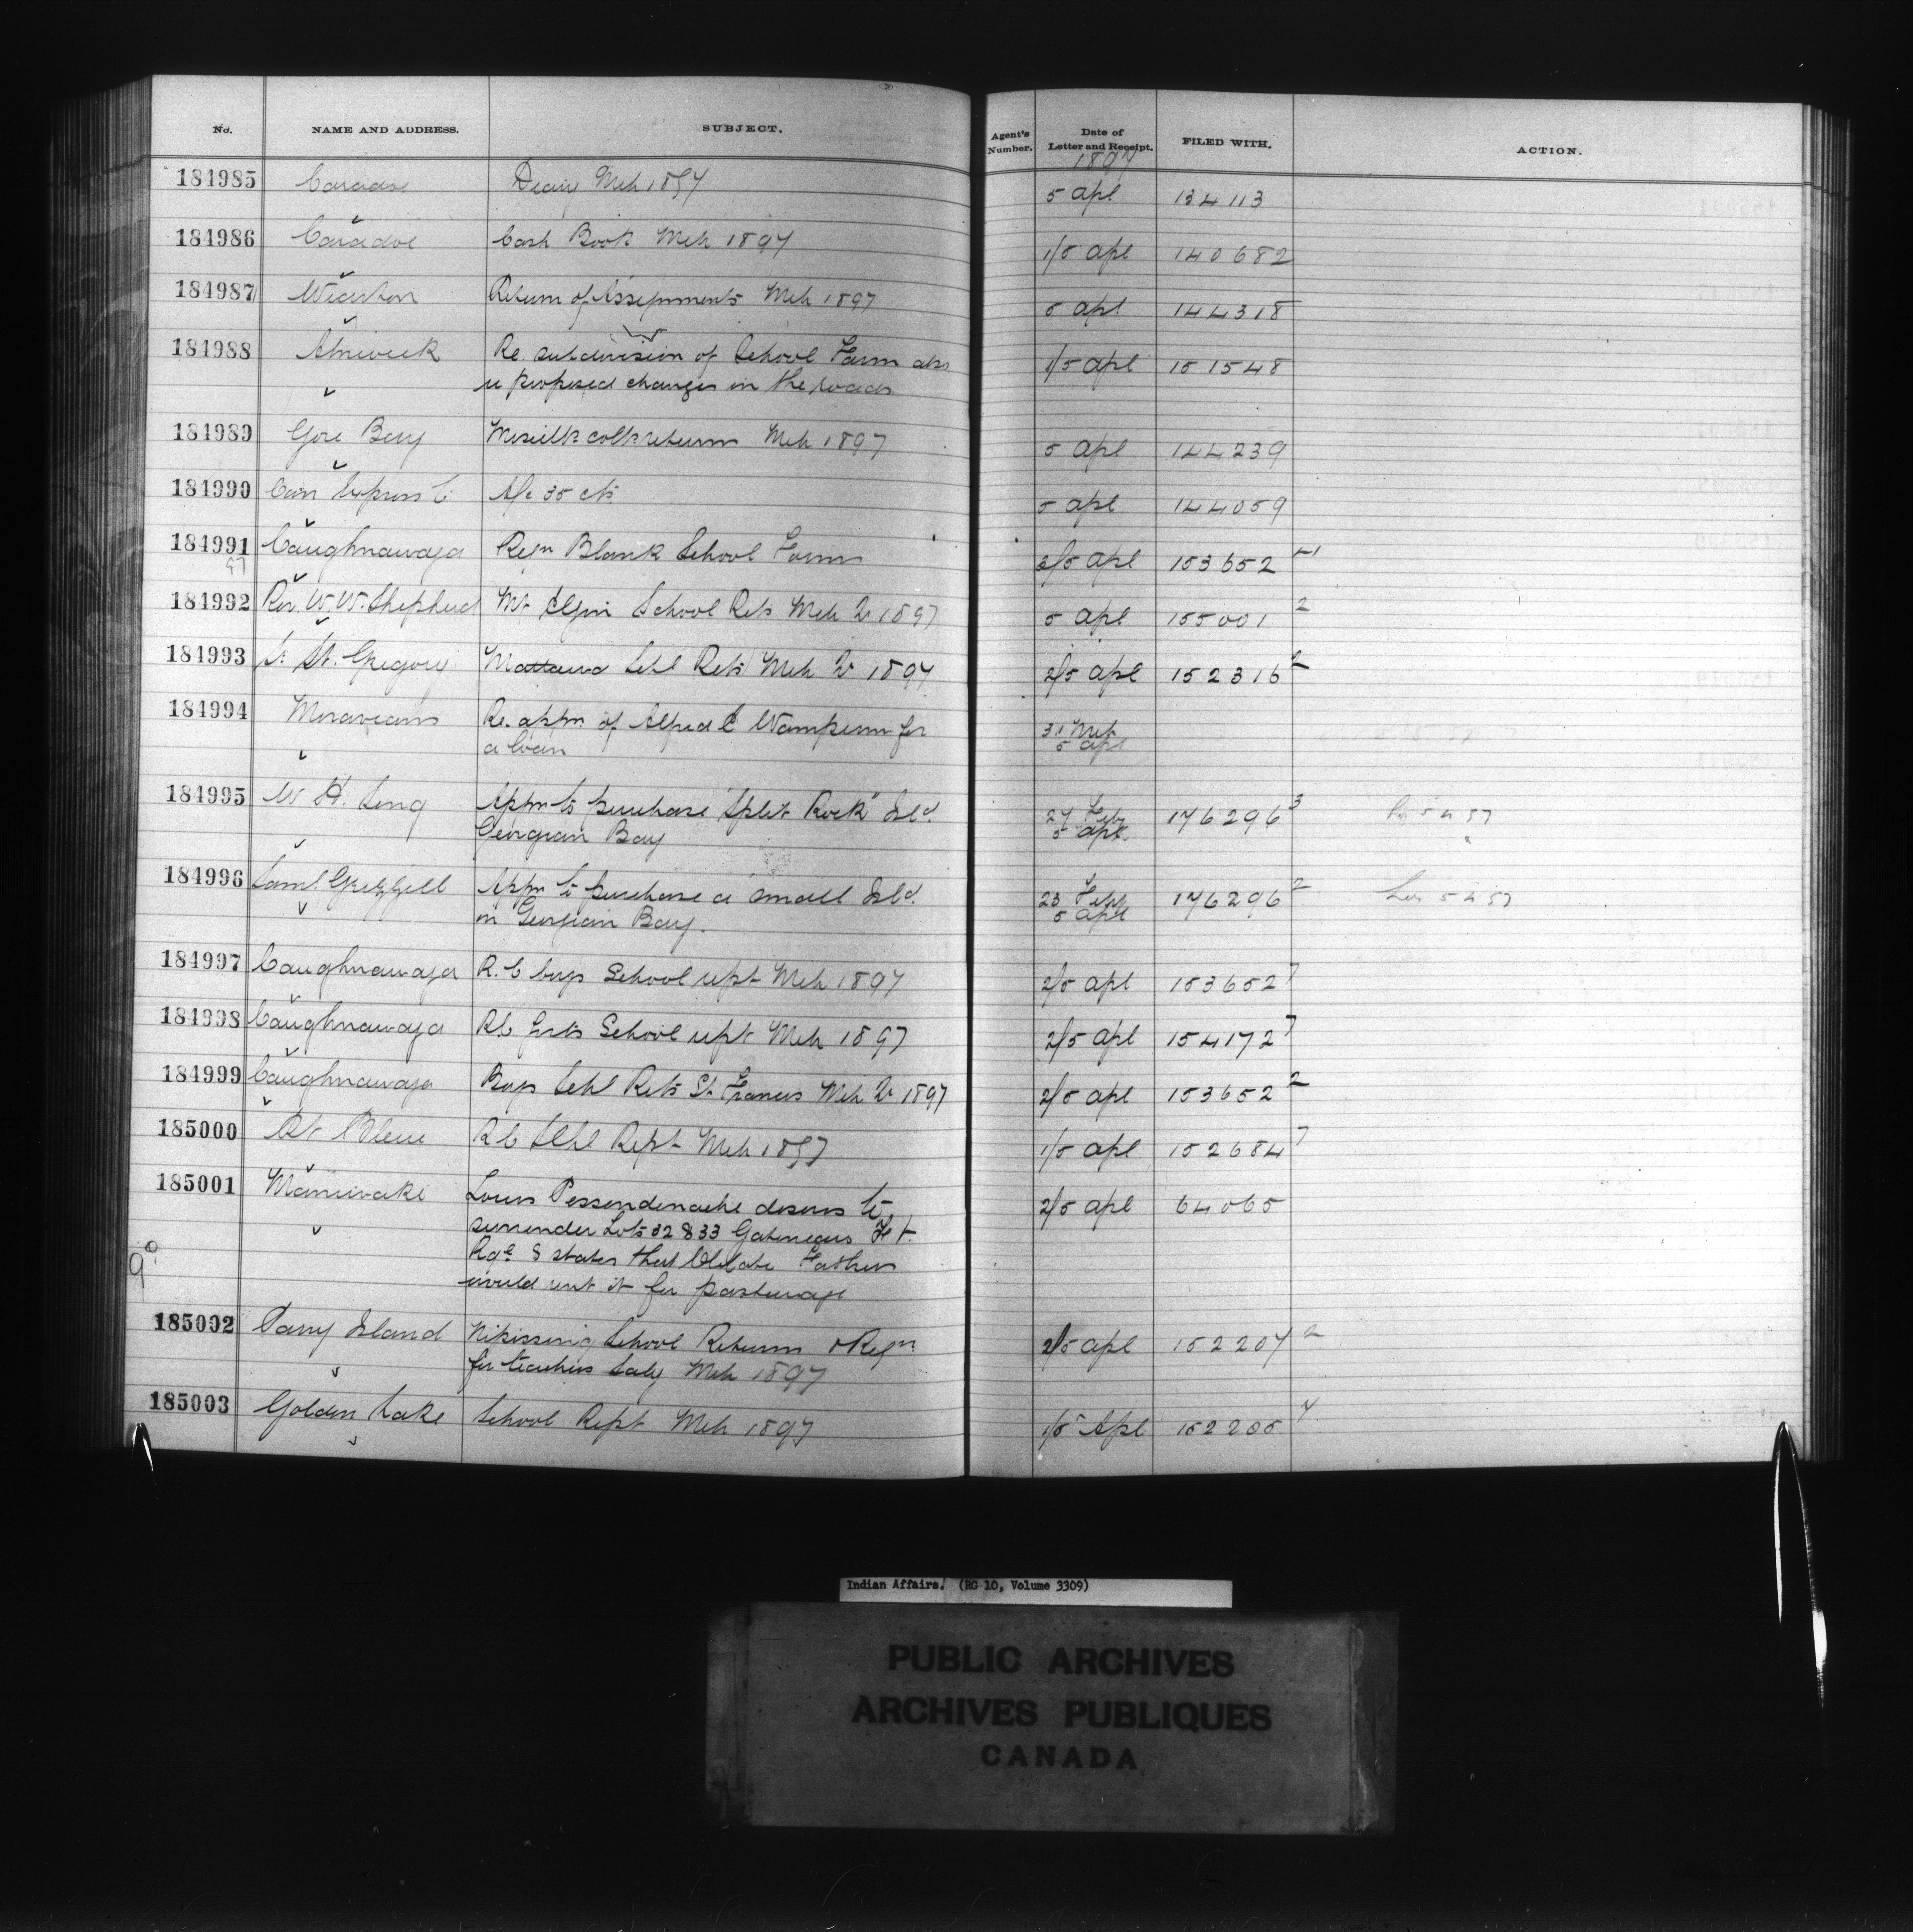 No. NAME AND ADDRESS. SUBJECT. Agent's Number. Date of Letter and Receipt. FILED WITH. ACTION.
1897
184985 Caradoc Diary Mch 1897 5 apl 134113
184986 Caradoc Cash Book Mch 1897 1/5 apl 140682
184987 Wiarton Return of Assignments Mch 1897 5 apl 144318
184988 Alnwick Re. subdivision of School Farm also 1/5 apl 151548
re proposed changes in the roads
184989 Gore Bay Mch 1897 5 apl 144239
184990 Can Express C A/c 35 cts 5 apl 144059
184991 Caughnawaga Reqn Blank School Forms 3/5 apl 153652
97
184992 Rev. W. W. Shepherd Mt Elgin School Rets Mch Qr 1897 5 apl 155001 2
184993 Sr. St. Gregory Mattawa Schl Rets Mch Qr 1897 2/5 apl 152316 2
184994 Moravians Re. appn. of Alfred E Wampum for 31 Mch
a loan 5 apl
184995 W. H. Long Appn to purchase "Split Rock" Isld. 27 Feby 176296 3
Georgian Bay 5 apl
184996 Saml. Appn to purchase a small Isld. 23 Feby 176296 2
in Georgian Bay. 5 apl
184997 Caughnawaga R. C boys School rept Mch 1897 2/5 apl 153652 7
184998 Caughnawaga RC Girls School rept Mch 1897 2/5 apl 154172 7
184999 Caughnawaga Boys Schl Rets St. Francis Mch Qr 1897 2/5 apl 153652 2
185000 Pt Bleue R C Schl Rept Mch 1897 1/5 apl 152684 7
185001 Maniwaki Louis Pessendewache desires to 2/5 apl 64065
surrender Lots 32 & 33 Gatineau Ft.
Rge & states that Oblate Fathers
would rent it for pasturage
185002 Parry Island Nipissing School Returns & Reqn 2/5 apl 152207 2
for teachers Saly Mch 1897
185003 Golden Lake School Rept Mch 1897 1/5 Apl 152205 7
Indian Affairs. (RG 10, Volume 3309)
PUBLIC ARCHIVES
ARCHIVES PUBLIQUES
CANADA